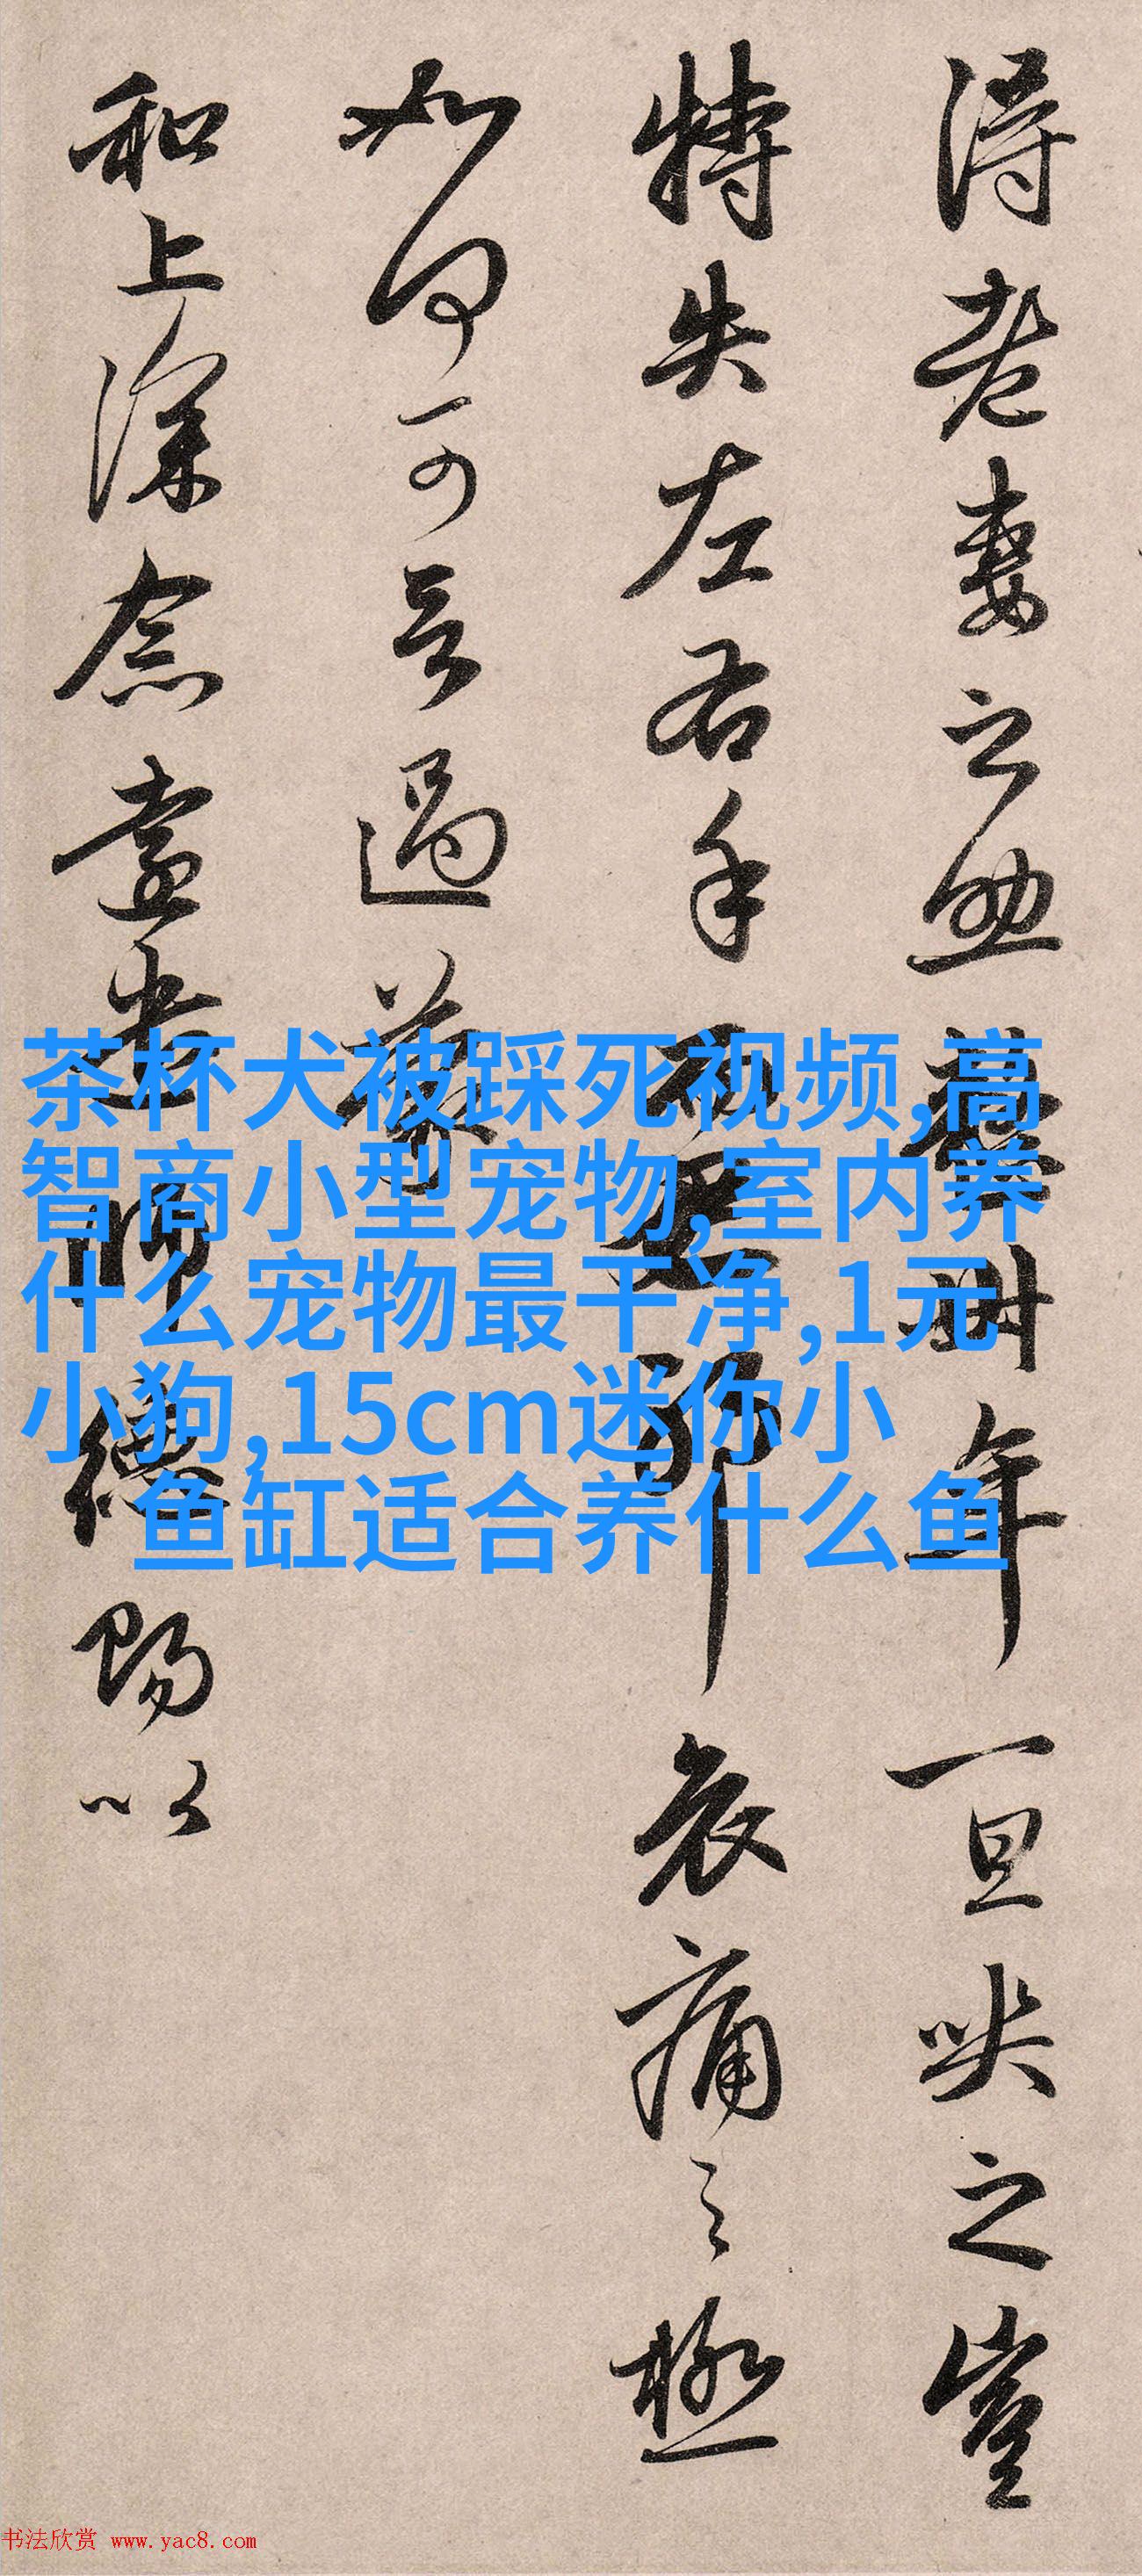 得老妻之助整卅年一旦哭之豈
特失左右手而已耶哀痛之極
如何可言過蒙
和上深念遠
賜以
茶杯犬被踩死视频,高
智商小型宠物,室内养
什么宠物最干净,1元
小狗,15cm迷你小
鱼缸适合养什么鱼
书法欣赏 www.yac8.com